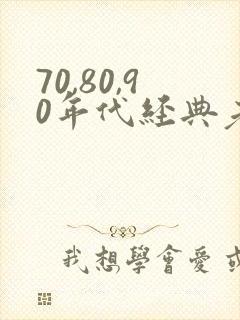 70,80,9
0年代経典
我想學會愛或